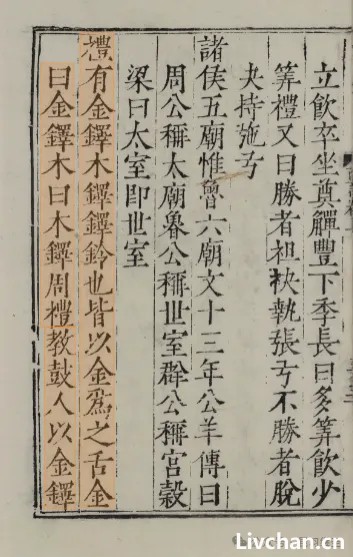 立飲卒坐奠觶豐下季長曰多筭飲少
筭禮又曰勝者袒袂執張弓不勝者脫
夬持弛弓
諸侯五廟惟魯六廟文十三年公羊傳曰
周公稱太廟魯公稱世室群公稱宮穀
梁曰太室即世室
禮有金鐸木鐸鐸鈴也皆以金爲之舌金
曰金鐸木曰木鐸周禮教鼓人以金鐸
Livchan.cn